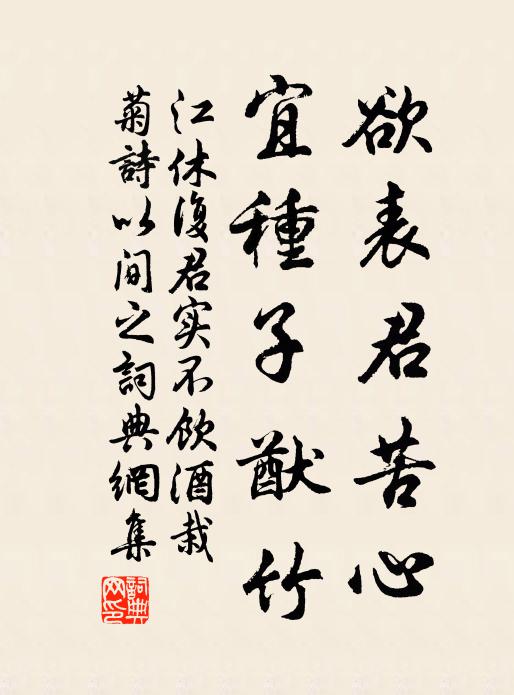 欲表君苦心
宜種子猷竹
江休復君实不飲酒栽
菊詩以间之詞典網集
詞典